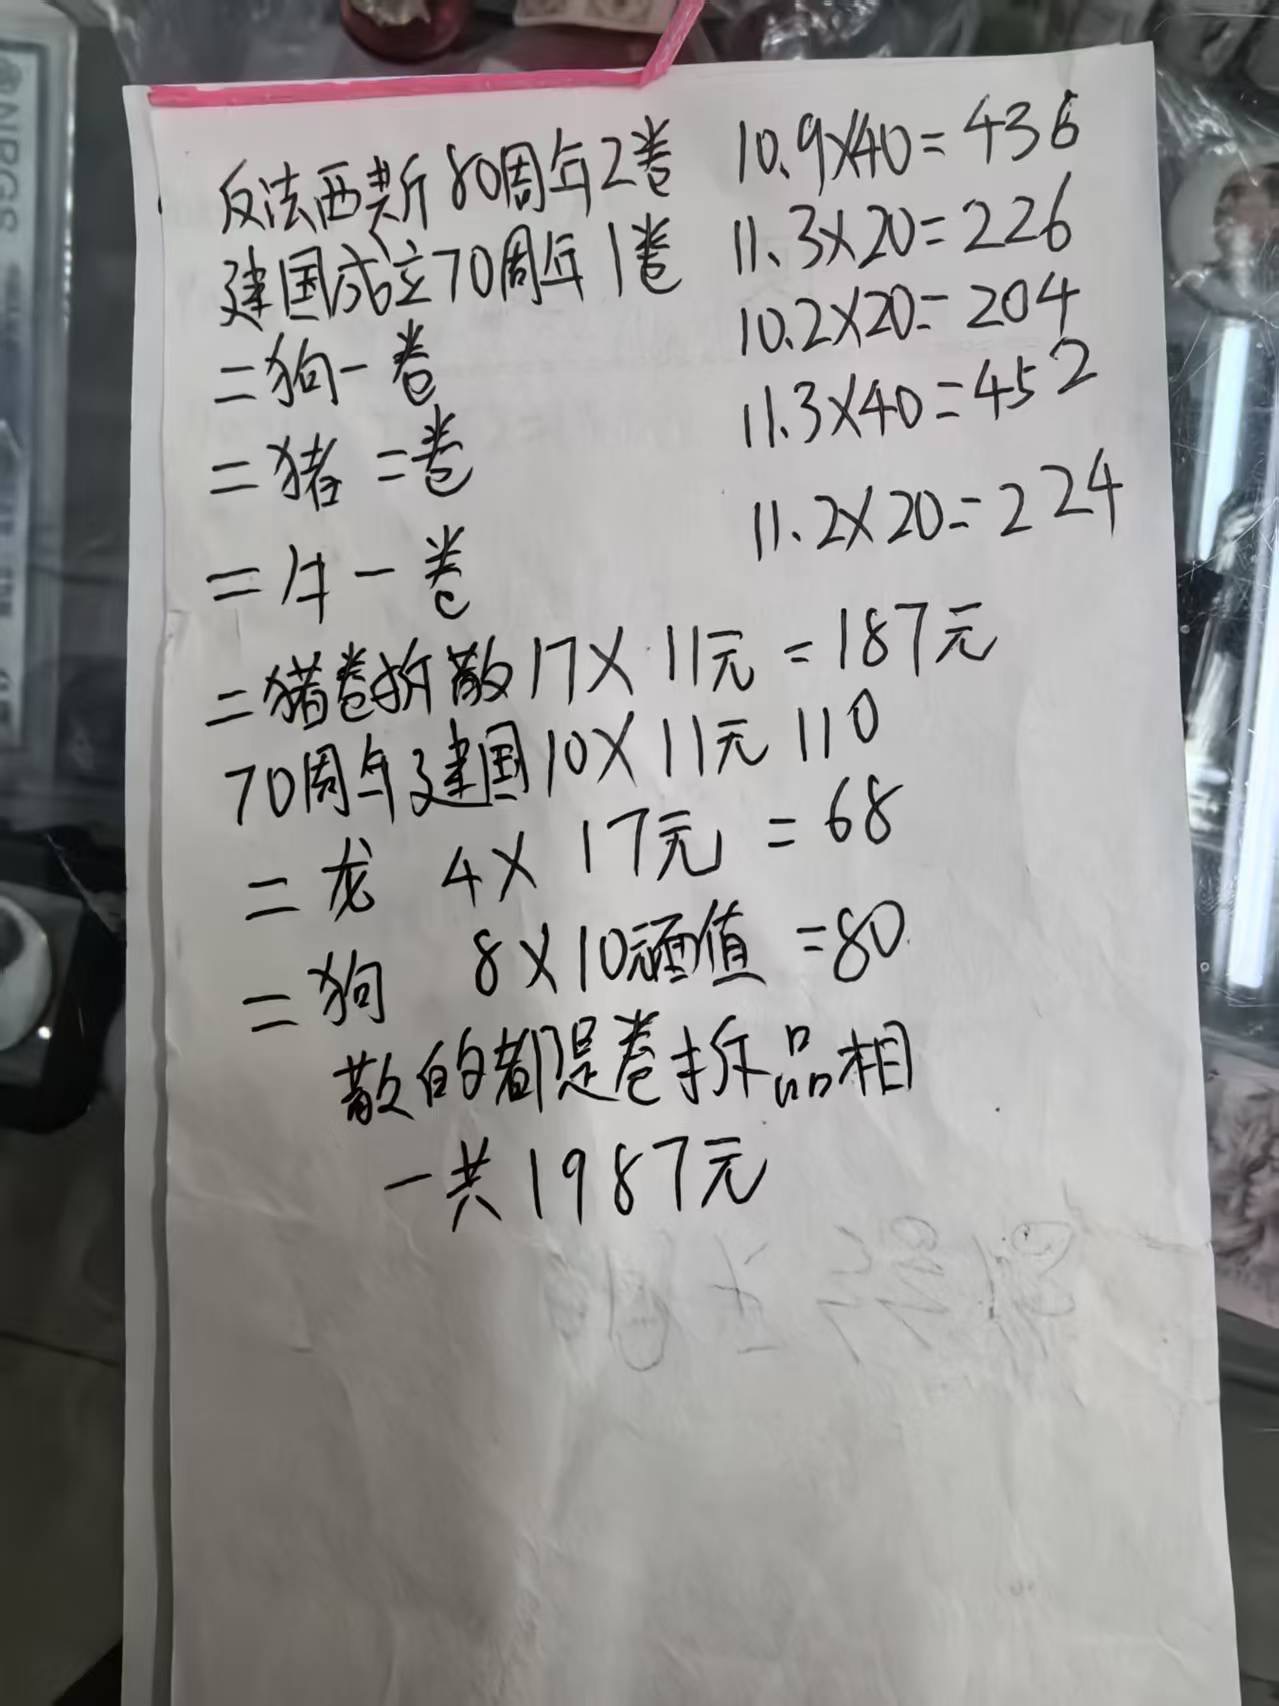 反法西斯80周年2卷 10.9×40=436
建国成立70周年1卷 11.3×20=226
二狗一卷 10.2×20=204
二猪二卷 11.3×40=452
二牛一卷 11.2×20=224
二猪卷拆散17×11元=187元
70周年建国10×11元 110
二龙 4×17元=68
二狗 8×10元面值=80
散的都是卷拆品相
一共1987元
NPGS